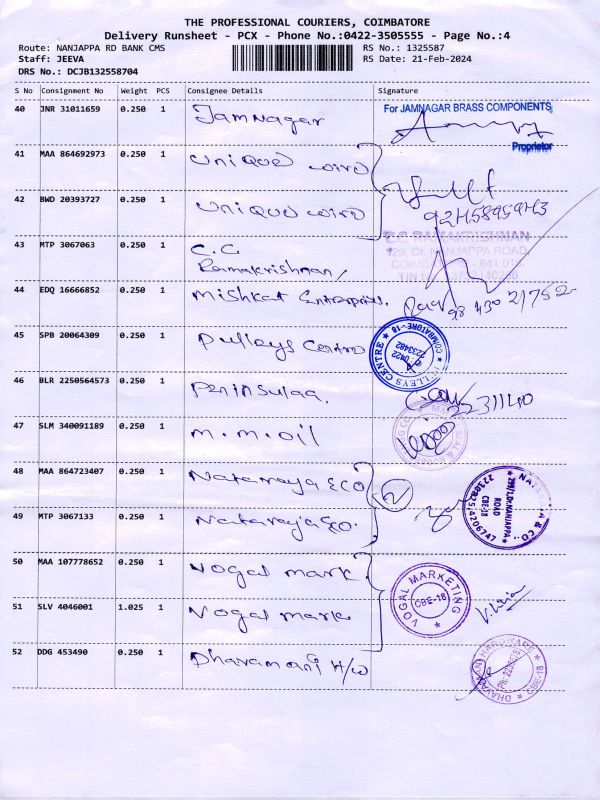 THE PROFESSIONAL COURIERS, COIMBATORE
Delivery Runsheet - PCX - Phone No.:0422-3505555 - Page No.:4
Route: NANJAPPA RD BANK CMS
RS No.: 1325587
Staff: JEEVA
RS Date: 21-Feb-2024
DRS No.: DCJB132558704
S No Consignment No Weight PCS Consignee Details Signature
40 JNR 31011659 0.250 1 Jamnagar
For JAMNAGAR BRASS COMPONENTS
Proprietor
41 MAA 864692973 0.250 1 Unique wire
42 BWD 20393727 0.250 1 Unique wire
43 MTP 3067063 0.250 1 C.C
Ramakrishnan
C.C RAMAKRISHNAN
NANJAPPA ROAD,
44 EDQ 16666852 0.250 1 Mishkat Enterprises.
98 430 21752
45 SPB 20064309 0.250 1 Pulleys Centre
PULLEYS CENTRE ★ COIMBATORE - 18 ★
46 BLR 2250564573 0.250 1 Peninsulaa.
2231140
47 SLM 340091189 0.250 1 M.M.Oil
48 MAA 864723407 0.250 1 Nataraja & CO
2
49 MTP 3067133 0.250 1 Nataraja & Co.
ROAD
CBE-18
50 MAA 107778652 0.250 1 Vogal mark.
VOGAL MARKETING
CBE-18
51 SLV 4046001 1.025 1 Vogal mark
52 DDG 453490 0.250 1 Dhavamani H/W
HARDWARE
CBE-18